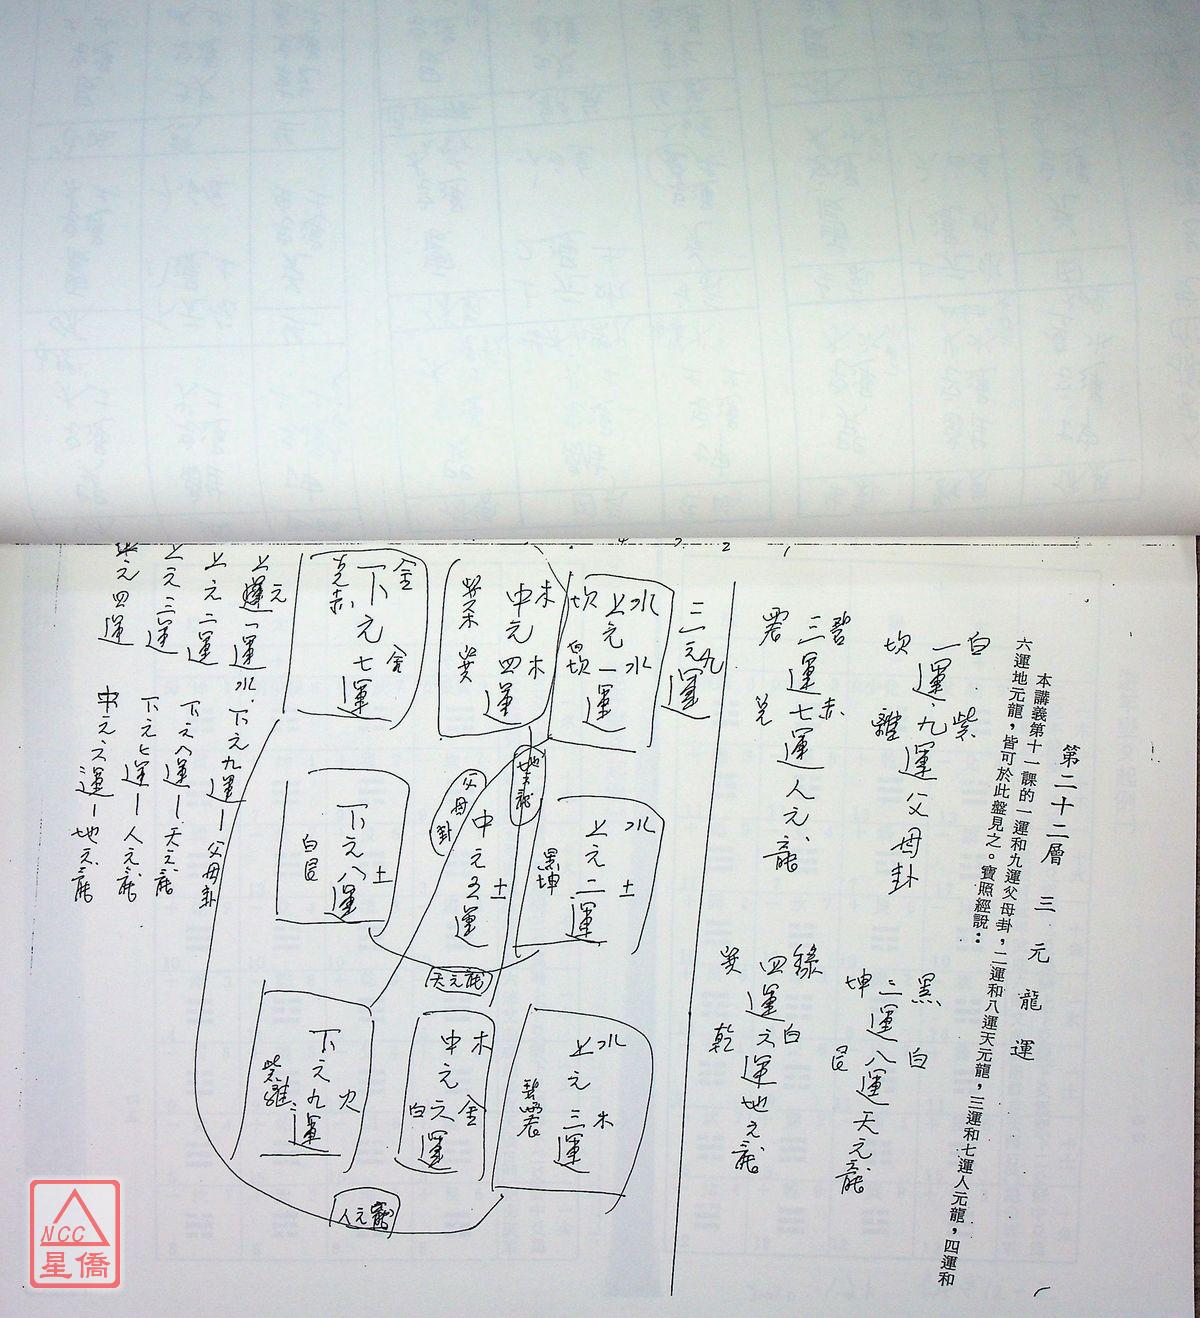 第二十二層　三元龍運
本講義第十一課的一運和九運父母卦，二運和八運天元龍，三運和七運人元龍，四運和
六運地元龍，皆可於此盤見之。寶照經說：
白　紫
一運、九運父母卦
坎　離
黑　白
二運八運天元龍
坤　艮
碧　赤
三運七運人元龍
震　兌
綠　白
四運六運地元龍
巽　乾
三元九運
水　水
上元一運
坎　白
水　土
上元二運
黑坤
水　木
上元三運
碧震
木　木
中元四運
巽
土
中元五運
木　金
中元六運
白
金　金
下元七運
兌赤
土
下元八運
白艮
火
下元九運
紫離
地元龍
父母卦
天元龍
人元龍
上元一運水、下元九運－父母卦
上元二運　下元八運－天元龍
上元三運　下元七運－人元龍
中元四運　中元六運－地元龍
NCC
星僑